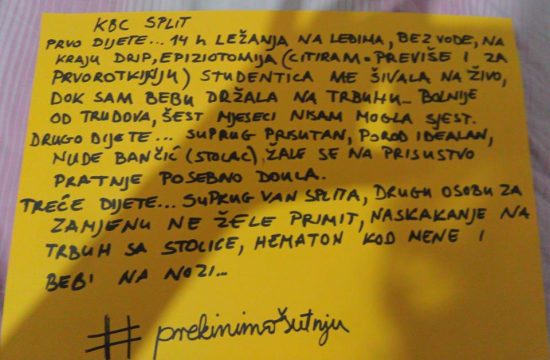 KBC SPLIT
PRVO DIJETE... 14 h LEŽANJA NA LEĐIMA, BEZ VODE, NA
KRAJU DRIP, EPIZIOTOMIJA (CITIRAM. PREVIŠE I ZA
PRVOROTKINJU) STUDENTICA ME ŠIVALA NA ŽIVO,
DOK SAM BEBU DRŽALA NA TRBUHU... BOLNIJE
OD TRUDOVA, ŠEST MJESECI NISAM MOGLA SJEST.
DRUGO DIJETE... SUPRUG PRISUTAN, POROD IDEALAN,
NUDE BANČIĆ (STOLAC), ŽALE SE NA PRISUSTVO
PRATNJE POSEBNO DOULA.
TREĆE DIJETE... SUPRUG VAN SPLITA, DRUGU OSOBU ZA
ZAMJENU NE ŽELE PRIMIT, NASKAKANJE NA
TRBUH SA STOLICE, HEMATON KOD MENE I
BEBI NA NOZI...
#prekinimošutnju